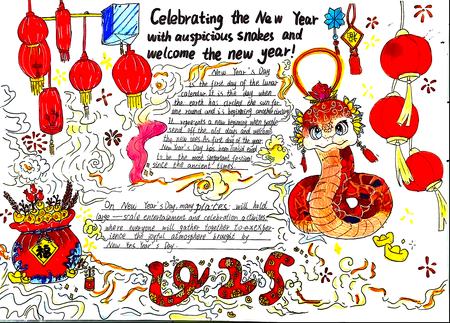 Celebrating the New Year
with auspicious snakes and
welcome the new year!
New Year's Day
is the first day of the lunar
calendar. It is the day when
the earth has circled the sun for
one round and is beginning another circling
It represents a new beginning when people
send off the old days and welcome
the new ones. As first day of the year,
New Year's Day has been
to be the most important festival
since the ancient time.
On New Year's Day, many places will hold
large-scale entertainment and celebration activities,
where everyone will gather together to exper
ience the joyful atmosphere brought by
New Year's Day.
福
2025